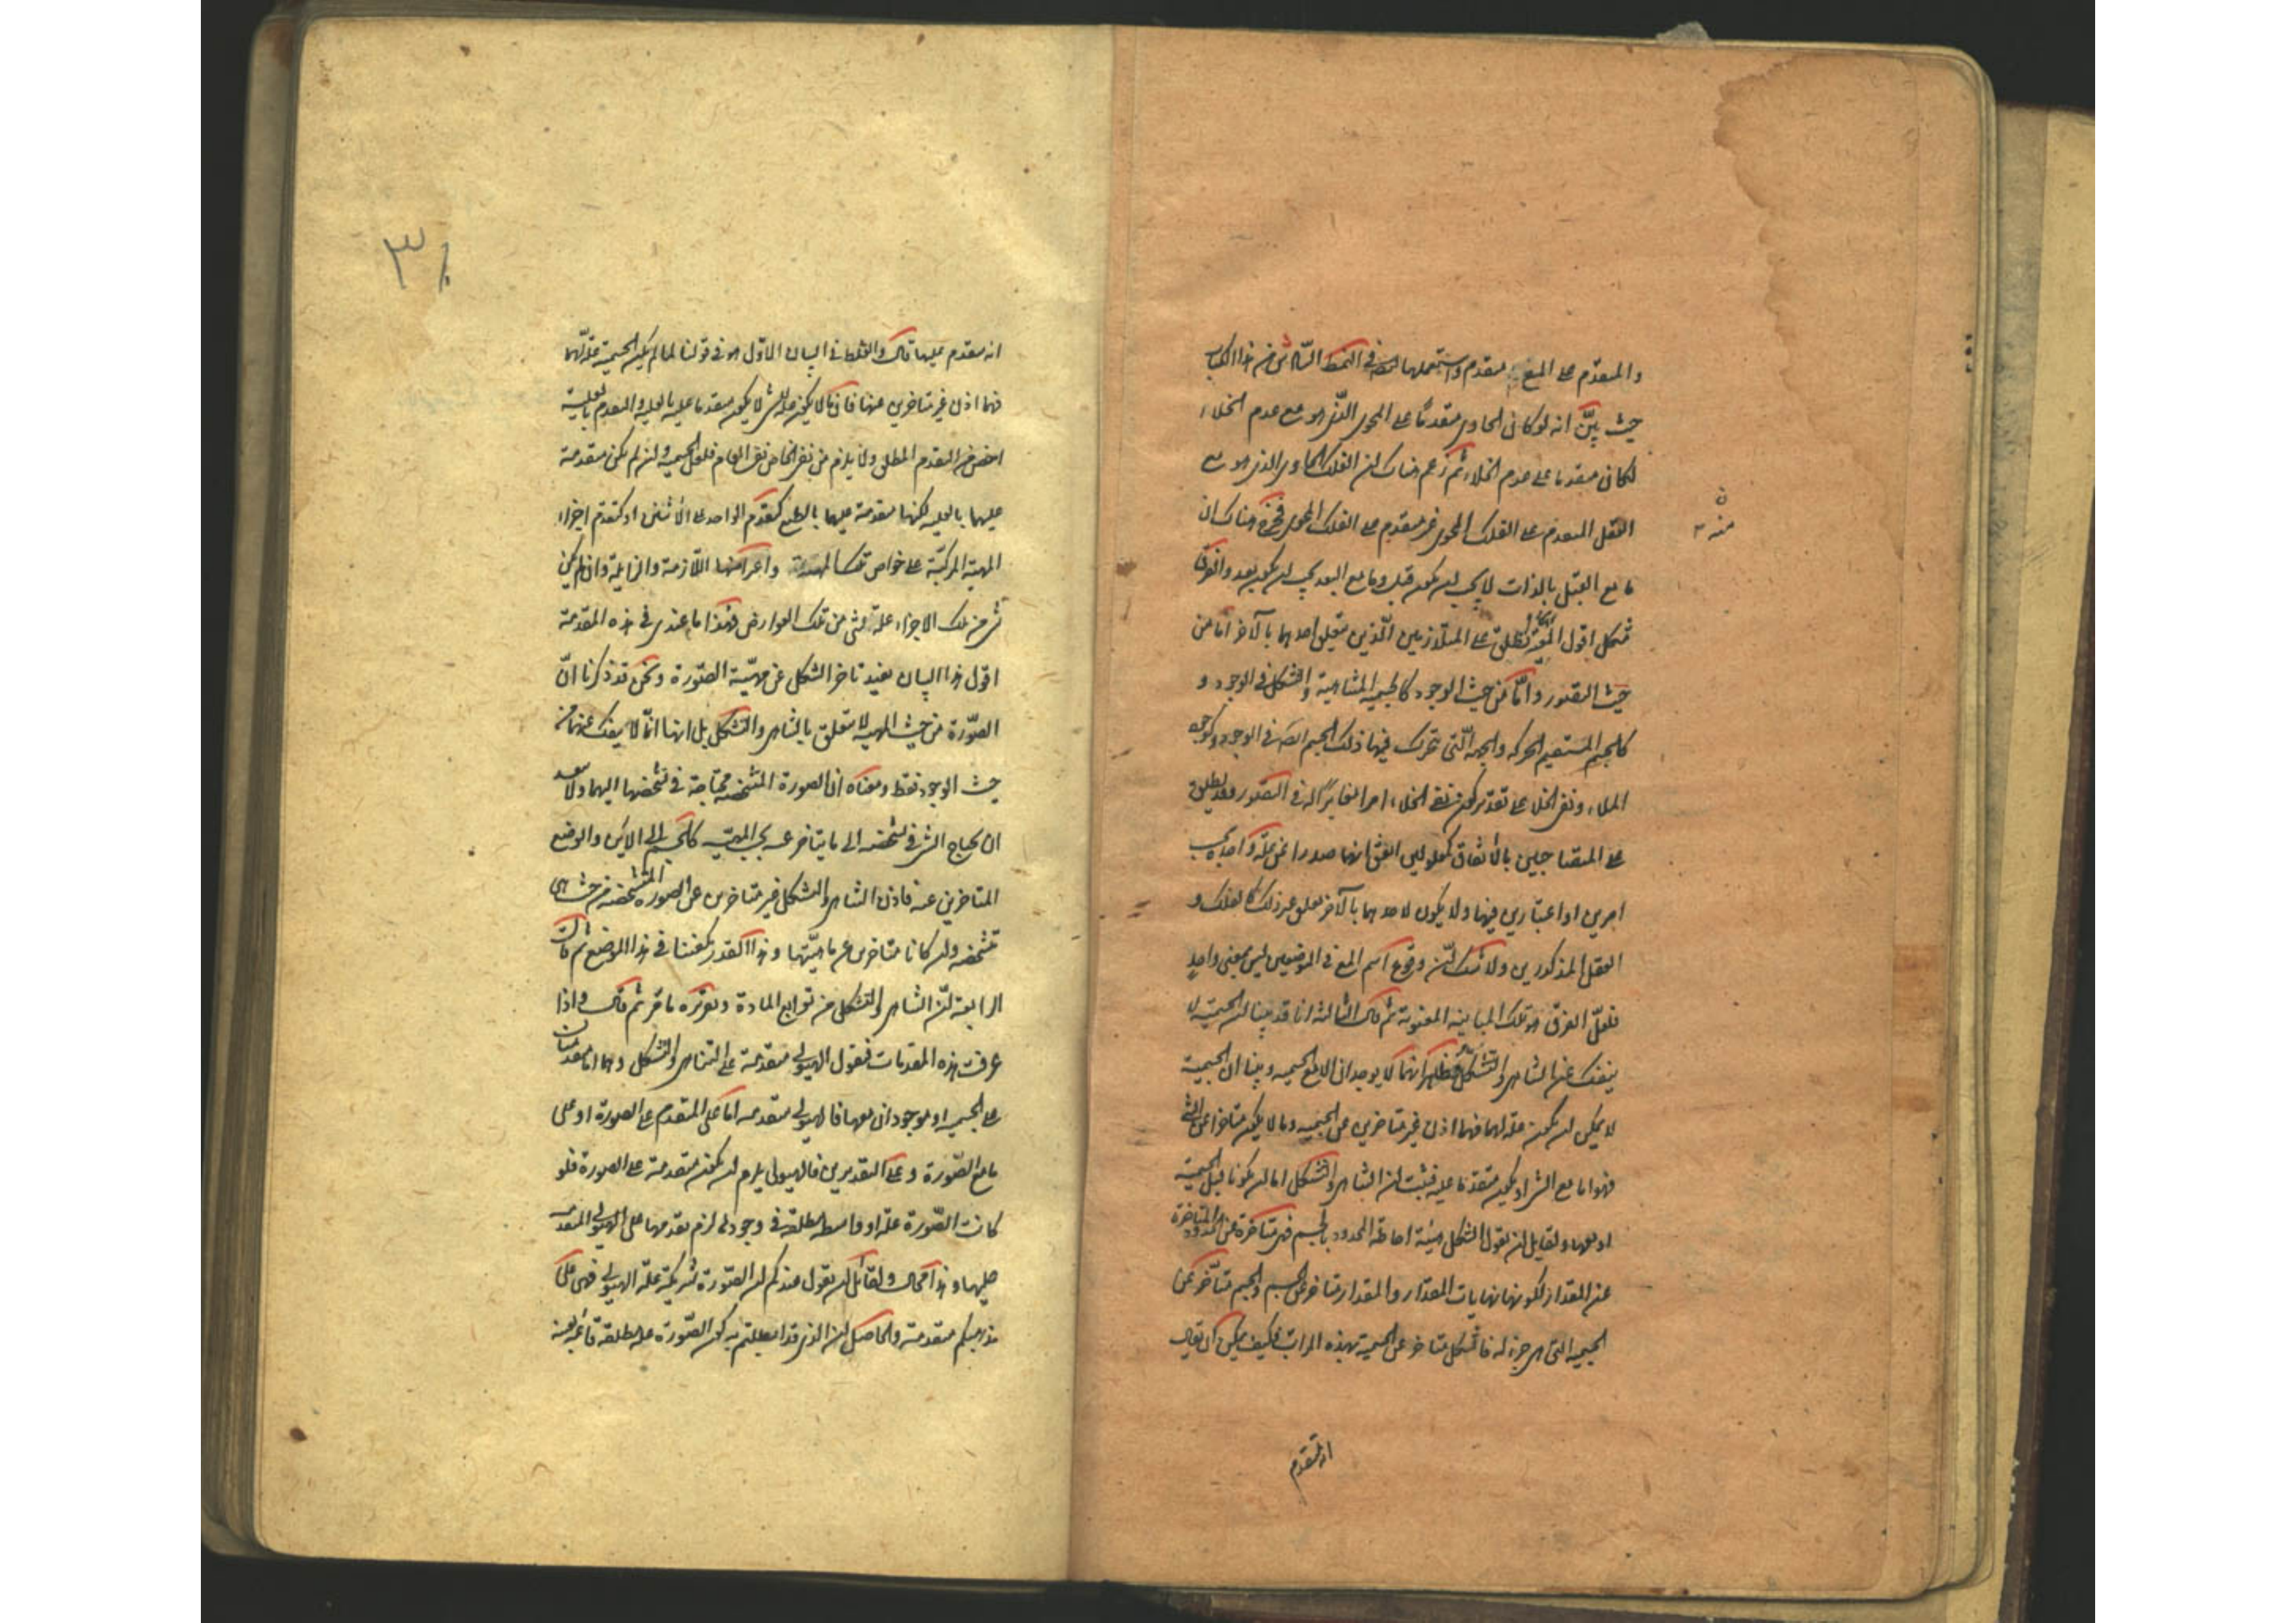 والمتقدم على المع متقدم واستعملها ايضا في النمط السادس من هذا الكتاب
حيث بيّن انه لو كان الحاوى متقدما على المحوى الذى هو مع عدم الخلاء
لكان متقدما على عدم الخلاء ثم زعم هناك ان الفلك الحاوى الذى هو مع
العقل المتقدم على الفلك المحوى غير متقدم على الفلك المحوى فخرج هناك ان
ما مع القبل بالذات لا يجب ان يكون قبل وما مع البعد يجب ان يكون بعد والفرق
مشكل اقول المعية تطلق على المتلازمين الّذين يتعلق احدهما بالآخر اما من
حيث التصور واما من حيث الوجود كالجسمية المتناهية والتشكل في الوجود و
كالجسم المستقيم الحركة والجهة الّتى تتحرك فيها ذلك الجسم ايضا في الوجود وكوجود
الملاء ونفى الخلاء على تقدير كون نفى الخلاء امرا مغايرا له في التصور وقد يطلق
على المتصاحبين بالاتفاق كمعلولين اتفق انهما صدرا عن علة واحدة بحسب
امرين او اعتبارين فيها ولا يكون لاحدهما بالآخر تعلق غير ذلك كالفلك و
العقل المذكورين ولا شك انّ وقوع اسم المع في الموضعين ليس بمعنى واحد
فلعلّ الفرق هو تلك المباينة المعنوية ثم قال الثالثة انا قد بينا ان الجسمية لا
ينفك عن التناهى والتشكل فظهر انهما لا يوجدان الا مع الجسمية وبينا ان الجسمية
لا يمكن ان يكون علة لهما فهما اذن غير متاخرين عن الجسمية وما لا يكون متاخرا عن الشئ
فهو اما مع الشئ او يكون متقدما عليه فثبت ان التناهى والتشكل اما ان يكونا قبل الجسمية
او معها ولقايل ان يقول الشكل هيئة احاطة الحدود بالجسم فهى متاخرة عن الحدود المتاخرة
عن المقدار لكونها نهايات المقدار والمقدار متاخر عن الجسم والجسم متاخر عن
الجسمية التى هى جزء له فالشكل متاخر عن الجسمية بهذه المراتب فكيف يمكن ان يقال
انه متقدم
٣٠
انه متقدم عليها قال والغلط في البيان الاول هو في قولنا لما لم يكن الجسمية علة لهما
فهما اذن غير متاخرين عنها فان ما لا يكون علة للشئ لا يكون متقدما عليه بالعلية والتقدم بالعلية
اخص من التقدم المطلق ولا يلزم من نفى الخاص نفى العام فلعل الجسمية وان لم تكن متقدمة
عليهما بالعلية لكنها متقدمة عليهما بالطبع كتقدم الواحد على الاثنين او كتقدم اجزاء
المهية المركبة على خواص تلك المهية واعراضها اللازمة والزايلة وان لم يكن
شئ من تلك الاجزاء علة لشئ من تلك العوارض فهذا ما عندى في هذه المقدمة
اقول هذا البيان يفيد تاخر الشكل عن مهيّة الصورة ونحن قد ذكرنا انّ
الصّورة من حيث المهية لا يتعلق بالتناهى والتشكل بل انها انّما لا ينفك عنهما من
حيث الوجود فقط ومعناه ان الصورة المتشخصة محتاجة في تشخصها اليهما ولا يبعد
ان يحتاج الشئ في تشخصه الى ما يتاخر عنه بحسب المهية كالجسم الى الاين والوضع
المتاخرين عنه فاذن التناهى والتشكل غير متاخرين عن الصورة المتشخصة من حيث هى
متشخصة وان كانا متاخرين عن ماهيّتها وهذا القدر يكفينا في هذا الموضع ثم قال
الرابعة انّ التناهى والتشكل من توابع المادة وتقريره ما مر ثم قال واذا
عرفت هذه المقدمات فنقول الهيولى متقدمة على التناهى والتشكل وهما اما متقدمان
على الجسمية او موجودان معها فالهيولى متقدمة اما على المتقدم على الصورة او على
ما مع الصّورة وعلى التقديرين فالهيولى يلزم ان تكون متقدمة على الصورة فلو
كانت الصّورة علة او واسطة مطلقة في وجودها لزم تقدمها على الهيولى المتقدمة
عليها وهذا محال ولقائل ان يقول عندكم ان الصّورة شريكة علة الهيولى فهى على
مذهبكم متقدمة والحاصل ان الذى قد ابطلتم به كون الصّورة علة مطلقة قائم بعينه